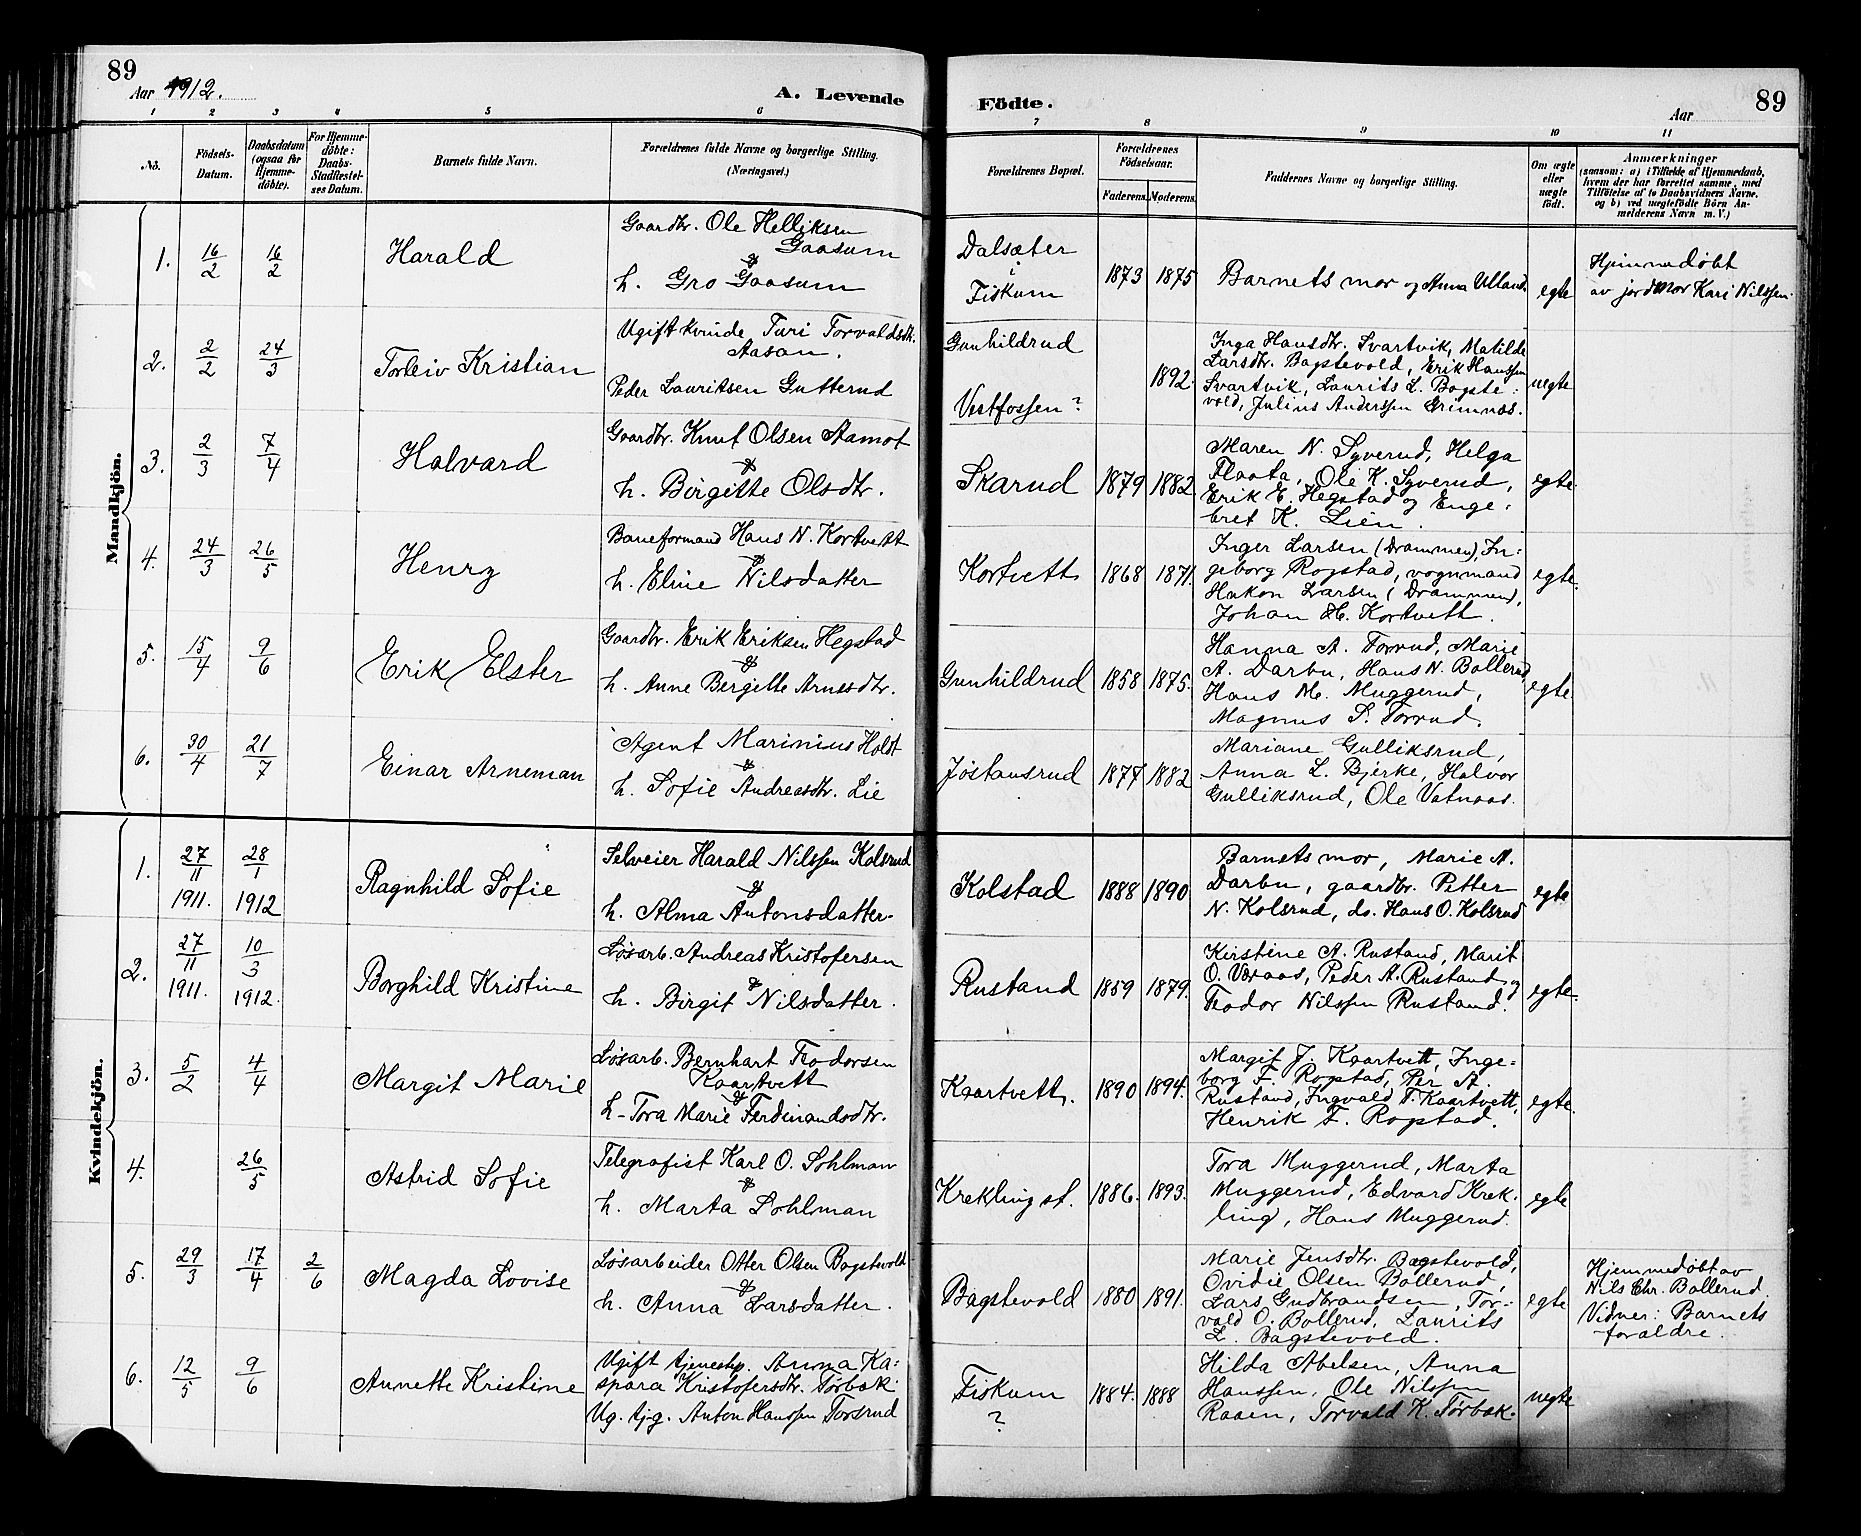 89
Aar 1912.
A. Levende
Födte.
Aar
89
1 2 3 4 5 6 7 8 9 10 11
No.
Födsels-
Datum.
Daabsdatum
(ogsaa for
Hjemme-
döbte).
For Hjemme-
döbte:
Daabs-
Stadfæstel-
ses Datum.
Barnets fulde Navn.
Forældrenes fulde Navne og borgerlige Stilling.
(Næringsvei.)
Forældrenes Bopæl.
Forældrenes
Födselsaar.
Faderens. Moderens.
Faddernes Navne og borgerlige Stilling.
Om ægte
eller
uægte
födt.
Anmærkninger
(saasom: a) i Tilfælde af Hjemmedaab,
hvem der har forrettet samme, med
Tilföielse af to Daabsvidners Navne.
og b) ved uægtefödte Börn An-
melderens Navn m. V.)
Mandkjön.
1. 16/2 16/2 Harald
Gaardbr. Ole Helliksen
Gaasum
&
h. Gro Gaasum
Dalsæter
i
Fiskum
1873 1875
Barnets mor og Anna Ulland.
egte
Hjemmedøbt
av jordmor Kari Nilssen.
2. 2/2 24/3 Torleiv Kristian
Ugift kvinde Turi Torvaldsdtr.
Aasan.
Peder Lauritsen Gutterud
Gunhildrud
Vestfossen?
1892.
Inga Hansdtr. Svartvik, Matilde
Larsdtr. Bagstevold, Erik Hanssen
Svartvik, Laurits L. Bagste-
vold, Julius Anderssen Grimnæs.
uegte
3. 2/3 7/4 Halvard
Gaardbr. Knut Olsen Aamot
&
h. Birgitte Olsdtr.
Skarud
1879 1882
Maren N. Syverud, Helga
Flaata, Ole K. Syverud,
Erik E. Hegstad og Enge-
bret K. Lien.
egte
4. 24/3 26/5 Henry
Baneformand Hans N. Kortvett
&
h. Eline Nilsdatter
Kortvett
1868 1871.
Inger Larsen (Drammen), In-
geborg Rogstad, vognmand
Hakon Larsen (Drammen),
Johan H. Kortvett.
egte.
5. 15/4 9/6 Erik Elster
Gaardbr. Erik Eriksen Hegstad
&
h. Anne Bergitte Arnesdtr.
Gunhildrud
1858 1875.
Hanna A. Torrud, Marie
A. Darbu, Hans N. Bollerud,
Hans M. Muggerud,
Magnus S. Torrud.
egte
6. 30/4 21/7 Einar Arneman
Agent Marinius Holst
&
h. Sofie Andreasdtr. Lie
Jøstansrud
1877 1882
Mariane Gulliksrud,
Anna L. Bjerke, Halvor
Gulliksrud, Ole Vatnaas.
Kvindekjön.
1. 27/11 1911. 28/1 1912 Ragnhild Sofie
Selveier Harald Nilssen Kolsrud
&
h. Alma Antonsdatter.
Kolstad
1888 1890
Barnets mor, Marie A.
Darbu, gaardbr. Petter
N. Kolsrud, do. Hans O. Kolsrud
egte
2. 27/11 1911. 10/3 1912. Borghild Kristine
Løsarb. Andreas Kristofersen
&
h. Birgit Nilsdatter.
Rustand
1859 1879.
Kirstine A. Rustand, Marit
O. Vøraas, Peder A. Rustand og
Teodor Nilssen Rustand.
egte.
3. 5/2 4/4 Margit Marie
Løsarb. Bernhart Teodorsen
Kaartvett
&
h. Tora Marie Ferdinandsdtr.
Kaartvett.
1890 1894.
Margit J. Kaartvett, Inge-
borg F. Rogstad, Per A.
Rustand, Ingvald T. Kaartvett,
Henrik F. Rogstad.
egte.
4. 26/5 Astrid Sofie
Telegrafist Karl O. Sohlman
&
h. Marta Sohlman
Krekling st.
1886. 1893.
Tora Muggerud, Marta
Muggerud, Edvard Krek-
ling, Hans Muggerud.
egte
5. 29/3 17/4 2/6 Magda Lovise
Løsarbeider Otter Olsen Bagstevold
&
h. Anna Larsdatter.
Bagstevold
1880 1891.
Marie Jensdtr. Bagstevold,
Ovidie Olsen Bollerud,
Lars Gudbrandsen, Tor-
vald O. Bollerud, Laurits
L. Bagstevold.
egte
Hjemmedøbt av
Nils Chr. Bollerud.
Vidner: Barnets
forældre.
6. 12/5 9/6 Annette Kristine
Ugift tjenestep. Anna Ka-
spara Kristofersdtr. Tørbæk
Ug. tj.g. Anton Hanssen Torsrud
Fiskum
?
1884. 1888
Hilda Abelsen, Anna
Hanssen, Ole Nilssen
Raaen, Torvald K. Tørbæk.
uegte